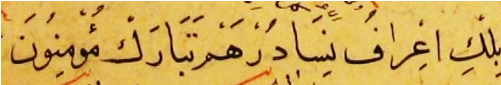 بلكِ اعراف نِسَا دُرْ هَمْ تَبَارَكْ مُؤْمِنُونَ